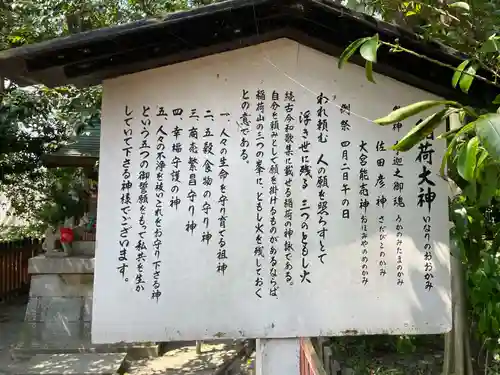 荷大神 いなりのおおかみ
迦之御魂 うかのみたまのかみ
佐田彦神 さだひこのかみ
大宮能売神 おほみやのめのかみ
例祭 四月二の午の日
われ頼む 人の願を照らすとて
浮き世に残る 三つのともし火
続古今和歌集に載せる稲荷の神詠である。
自分を頼みとして願を掛けるものがあるならば、
稲荷山の三つの峯に、ともし火を残しておく
との意である。
一、人の生命を守り育てる祖神
二、五穀食物の守り神
三、商売繁昌守り神
四、幸福守護の神
五、人々の不浄を祓いこれをお守り下さる神
という五つの御誓願をもって私共を生か
していて下さる神様でございます。